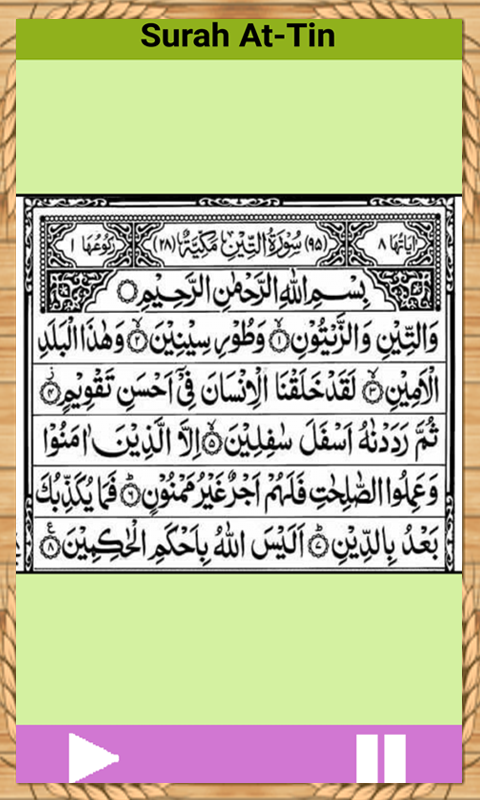 Surah At-Tin
اٰیَاتُهَا ٨ (٩٥) سُوْرَةُ التِّيْنِ مَكِّيَّةٌ (٢٨) رُكُوْعُهَا ١
بِسْمِ اللّٰهِ الرَّحْمٰنِ الرَّحِيْمِ
وَالتِّيْنِ وَالزَّيْتُوْنِ ۙ‏﴿۱﴾ وَطُوْرِ سِيْنِيْنَ ۙ‏﴿۲﴾ وَهٰذَا الْبَلَدِ
الْاَمِيْنِ ۙ‏﴿۳﴾ لَقَدْ خَلَقْنَا الْاِنْسَانَ فِيْۤ اَحْسَنِ تَقْوِيْمٍ ۫‏﴿۴﴾
ثُمَّ رَدَدْنٰهُ اَسْفَلَ سٰفِلِيْنَ ۙ‏﴿۵﴾ اِلَّا الَّذِيْنَ اٰمَنُوْا
وَعَمِلُوا الصّٰلِحٰتِ فَلَهُمْ اَجْرٌ غَيْرُ مَمْنُوْنٍ ؕ‏﴿۶﴾ فَمَا يُكَذِّبُكَ
بَعْدُ بِالدِّيْنِ ؕ‏﴿۷﴾ اَلَيْسَ اللّٰهُ بِاَحْكَمِ الْحٰكِمِيْنَ ﴿۸﴾ ع